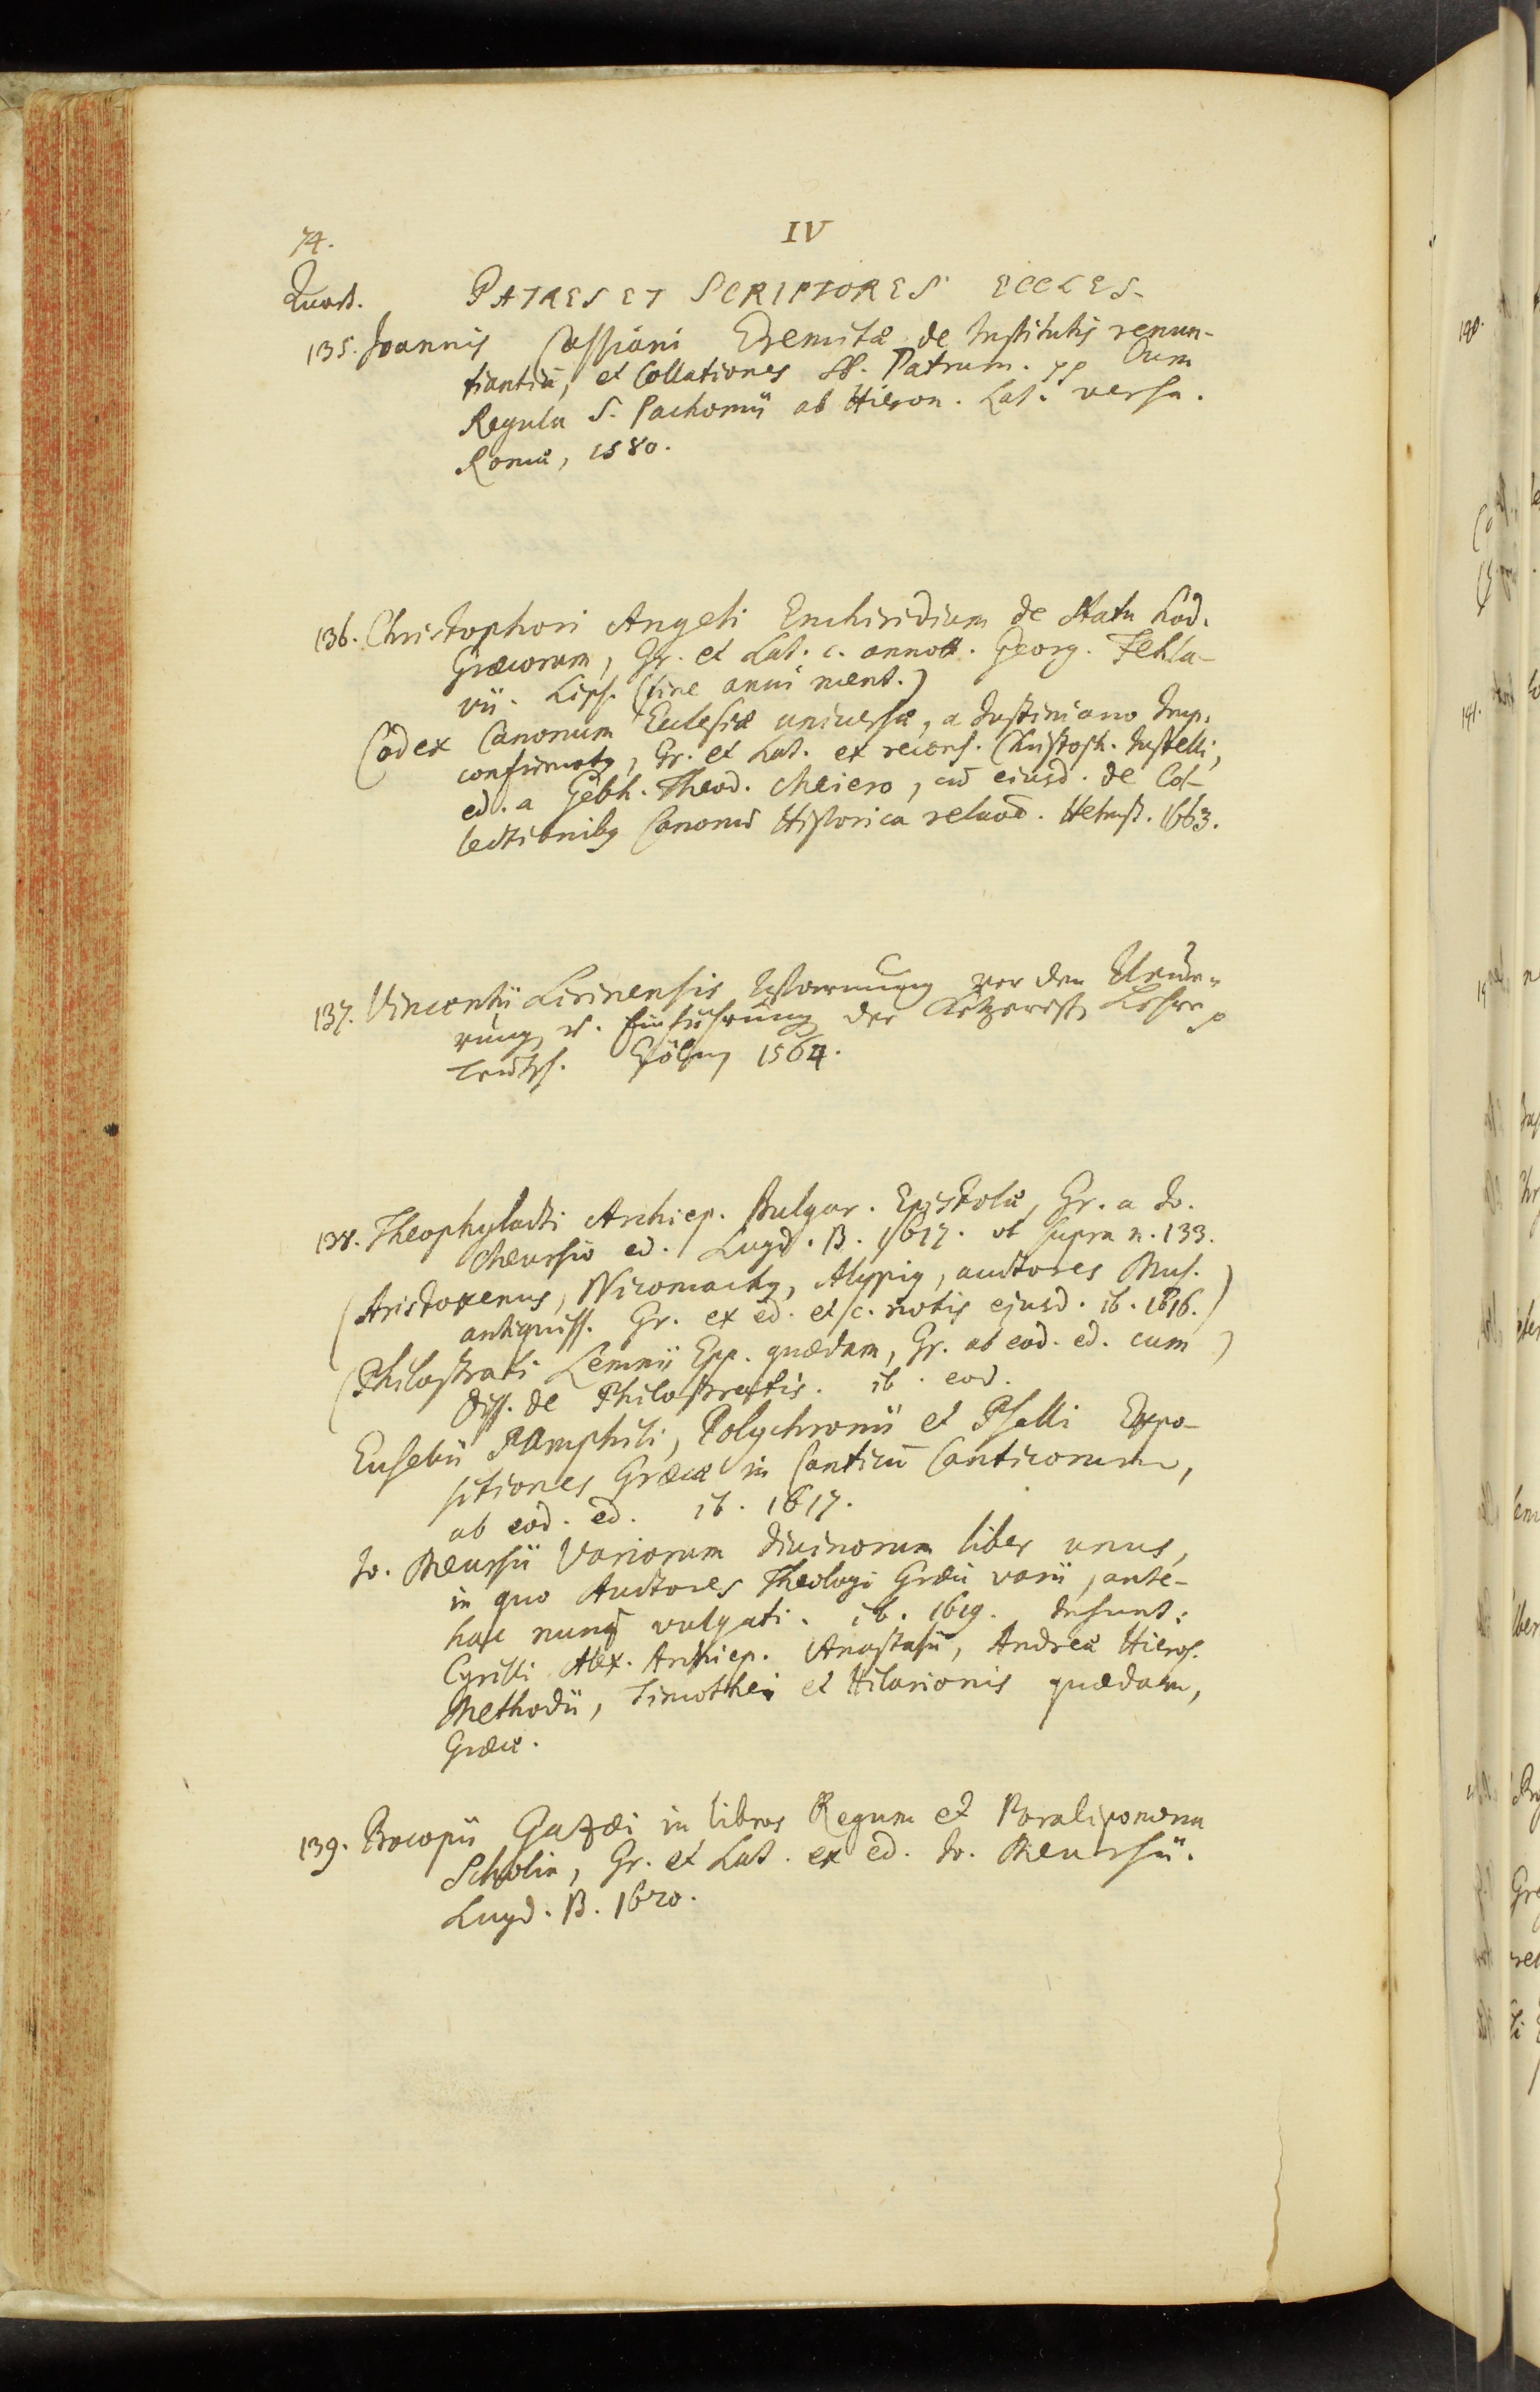 74.
IV
Quart.
PATRES ET SCRIPTORES ECCLES.
135. Joannis Cassiani Eremitæ de Institutis renun-
tiantiū, et Collationes SS. Patrum. pp Cum
Regula S. Pachomii ab Hieron. Lat. versa.
Romæ, 1580.
136. Christophori Angeli Enchiridium de Statu hod.
Græcorum, Gr. et Lat. c. annott. Georg. Fehla-
vii. Lips. (sine anni ment.)
Codex Canonum Ecclesiæ universæ, a Justiniano Imp.
confirmatus, Gr. et Lat. ex recens. Christoph. Justelli,
ed. a Gebh. Theod. Meiero, cū eiusd. de Col-
lectionibus Canonū Historica relaōe. Helmst. 1663.
137. Vincentii Lirinensis Warnung vor den Neüe-
rung u. Einführung der Ketzerisch Lehre p
Teutsch. Cöln, 1564.
138. Theophylacti Archiep. Bulgar. Epistolæ, Gr. a Jo.
Meursio ed. Lugd. B. 1617. vt supra n. 133.
(Aristoxenus, Nicomachus, Alypius, auctores Mus.)
antiquiss. Gr. ex ed. et c. notis ejusd. ib. 1616.)
(Philostrati Lemnii Epp. quædam, Gr. ab eod. ed. cum)
Diss. de Philostratis. ib. eod.
Eusebii Pamphili, Polychronii et Pselli Expo-
sitiones Græcæ in Canticū Canticorum,
ab eod. ed. ib. 1617.
Jo. Meursii Variorum divinorum liber unus,
in quo Auctores Theologi Græci varii, ante-
hac nunq̄ vulgati. ib. 1619. Insunt:
Cyrilli Alex. Archiep. Anastasii, Andreæ Hieros.
Methodii, Timothei et Hilarionis quædam,
Græce.
139. Procopii Gazæi in libros Regum et Paralipomena
Scholia, Gr. et Lat. ex ed. Jo. Meursii.
Lugd. B. 1620.
140.
141.